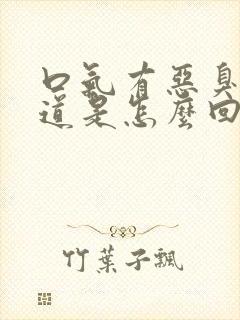 口氣有惡臭
道是怎麼回
竹葉子飄